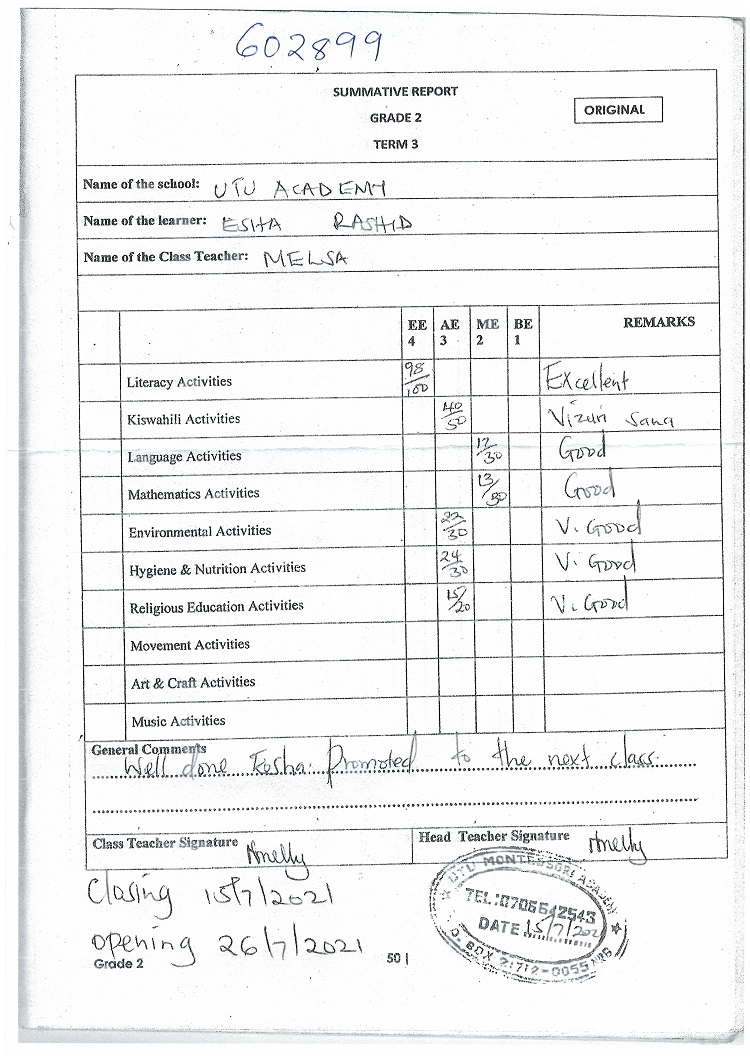 602899
SUMMATIVE REPORT
ORIGINAL
GRADE 2
TERM 3
Name of the school: UTU ACADEMY
Name of the learner: ESHA RASHID
Name of the Class Teacher: MELSA
EE 4 AE 3 ME 2 BE 1 REMARKS
Literacy Activities 98/100 Excellent
Kiswahili Activities 40/50 Vizuri Sana
Language Activities 12/30 Good
Mathematics Activities 13/30 Good
Environmental Activities 22/30 V. Good
Hygiene & Nutrition Activities 24/30 V. Good
Religious Education Activities 15/20 V. Good
Movement Activities
Art & Craft Activities
Music Activities
General Comments
Well done Eesha. Promoted to the next class.
Class Teacher Signature Head Teacher Signature
Closing 15/7/2021
Opening 26/7/2021
UTU MONTESSORI
TEL:0706642543
DATE 15/7/202
BOX 21712-0055
Grade 2 50 |